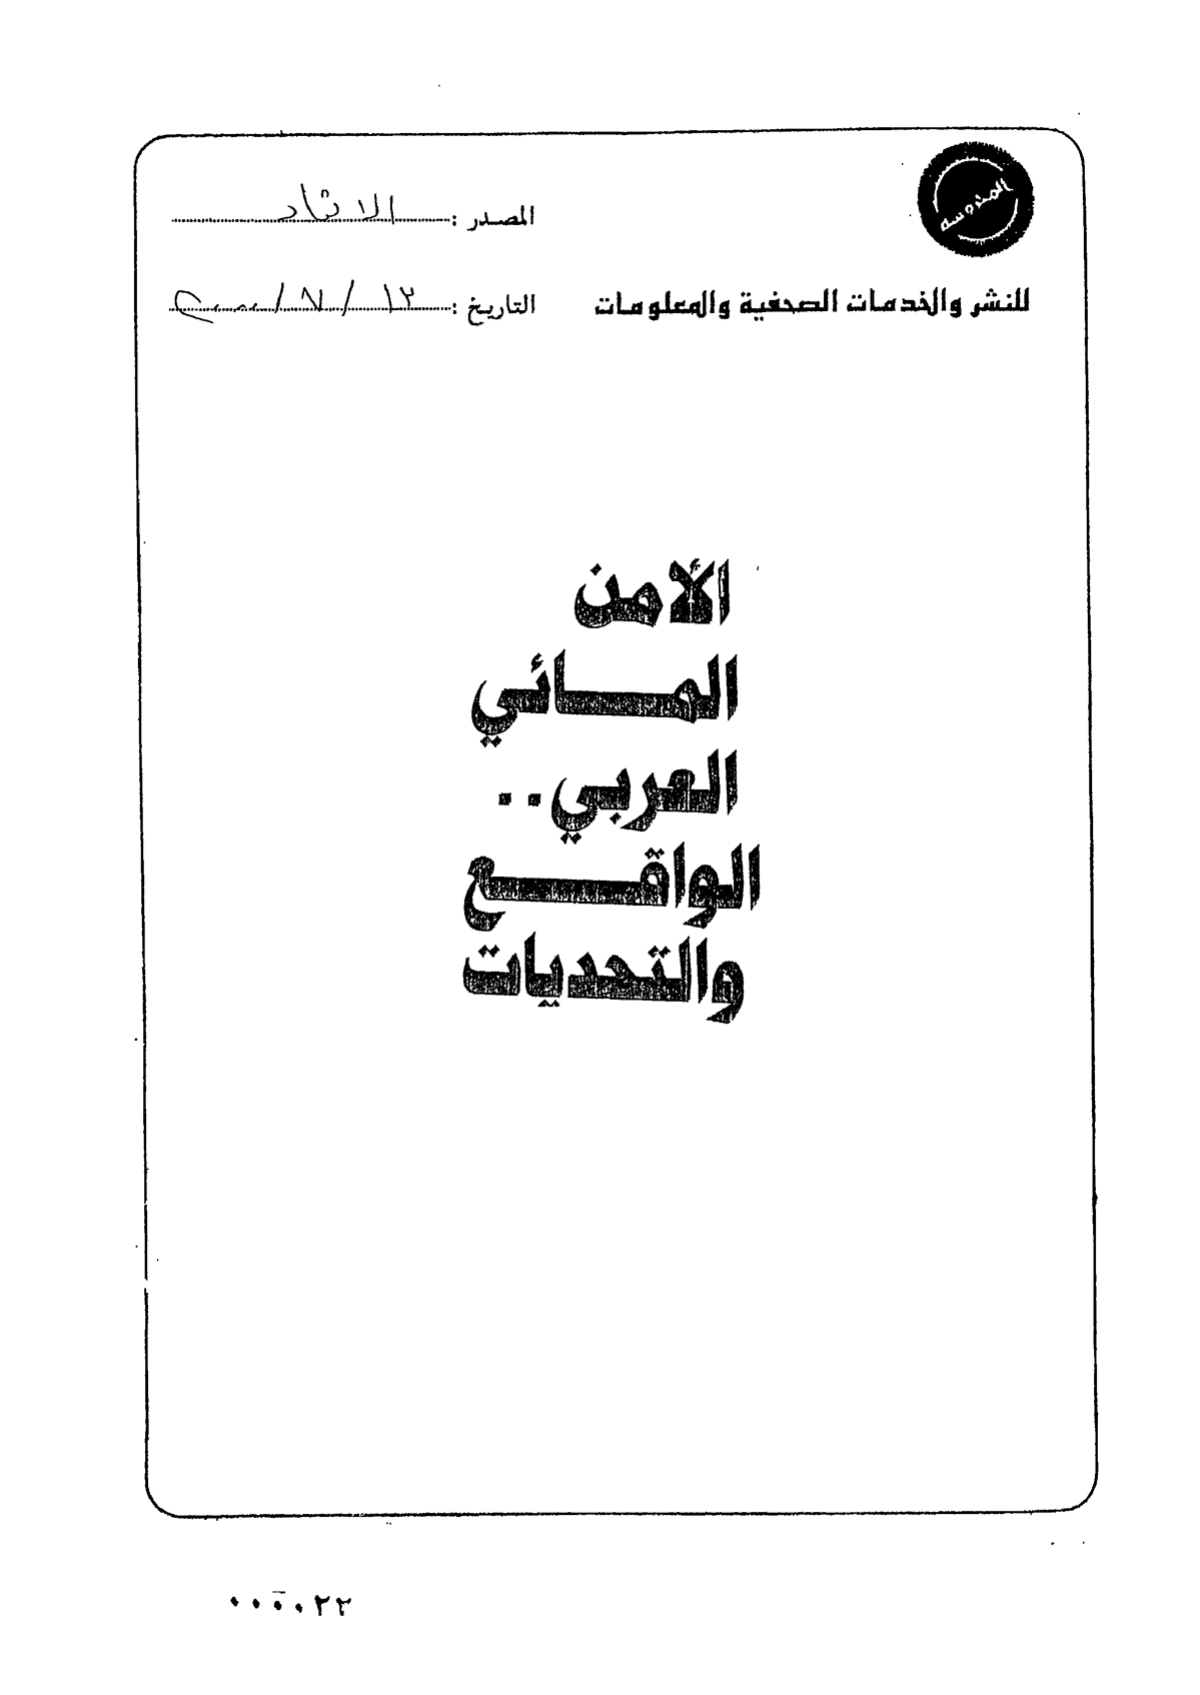 المحروسة
المصدر : الاتحاد
للنشر والخدمات الصحفية والمعلومات
التاريخ : ١٢ / ٧ /
الأمن
المائي
العربي..
الواقع
والتحديات
٠٠٠٠٢٢